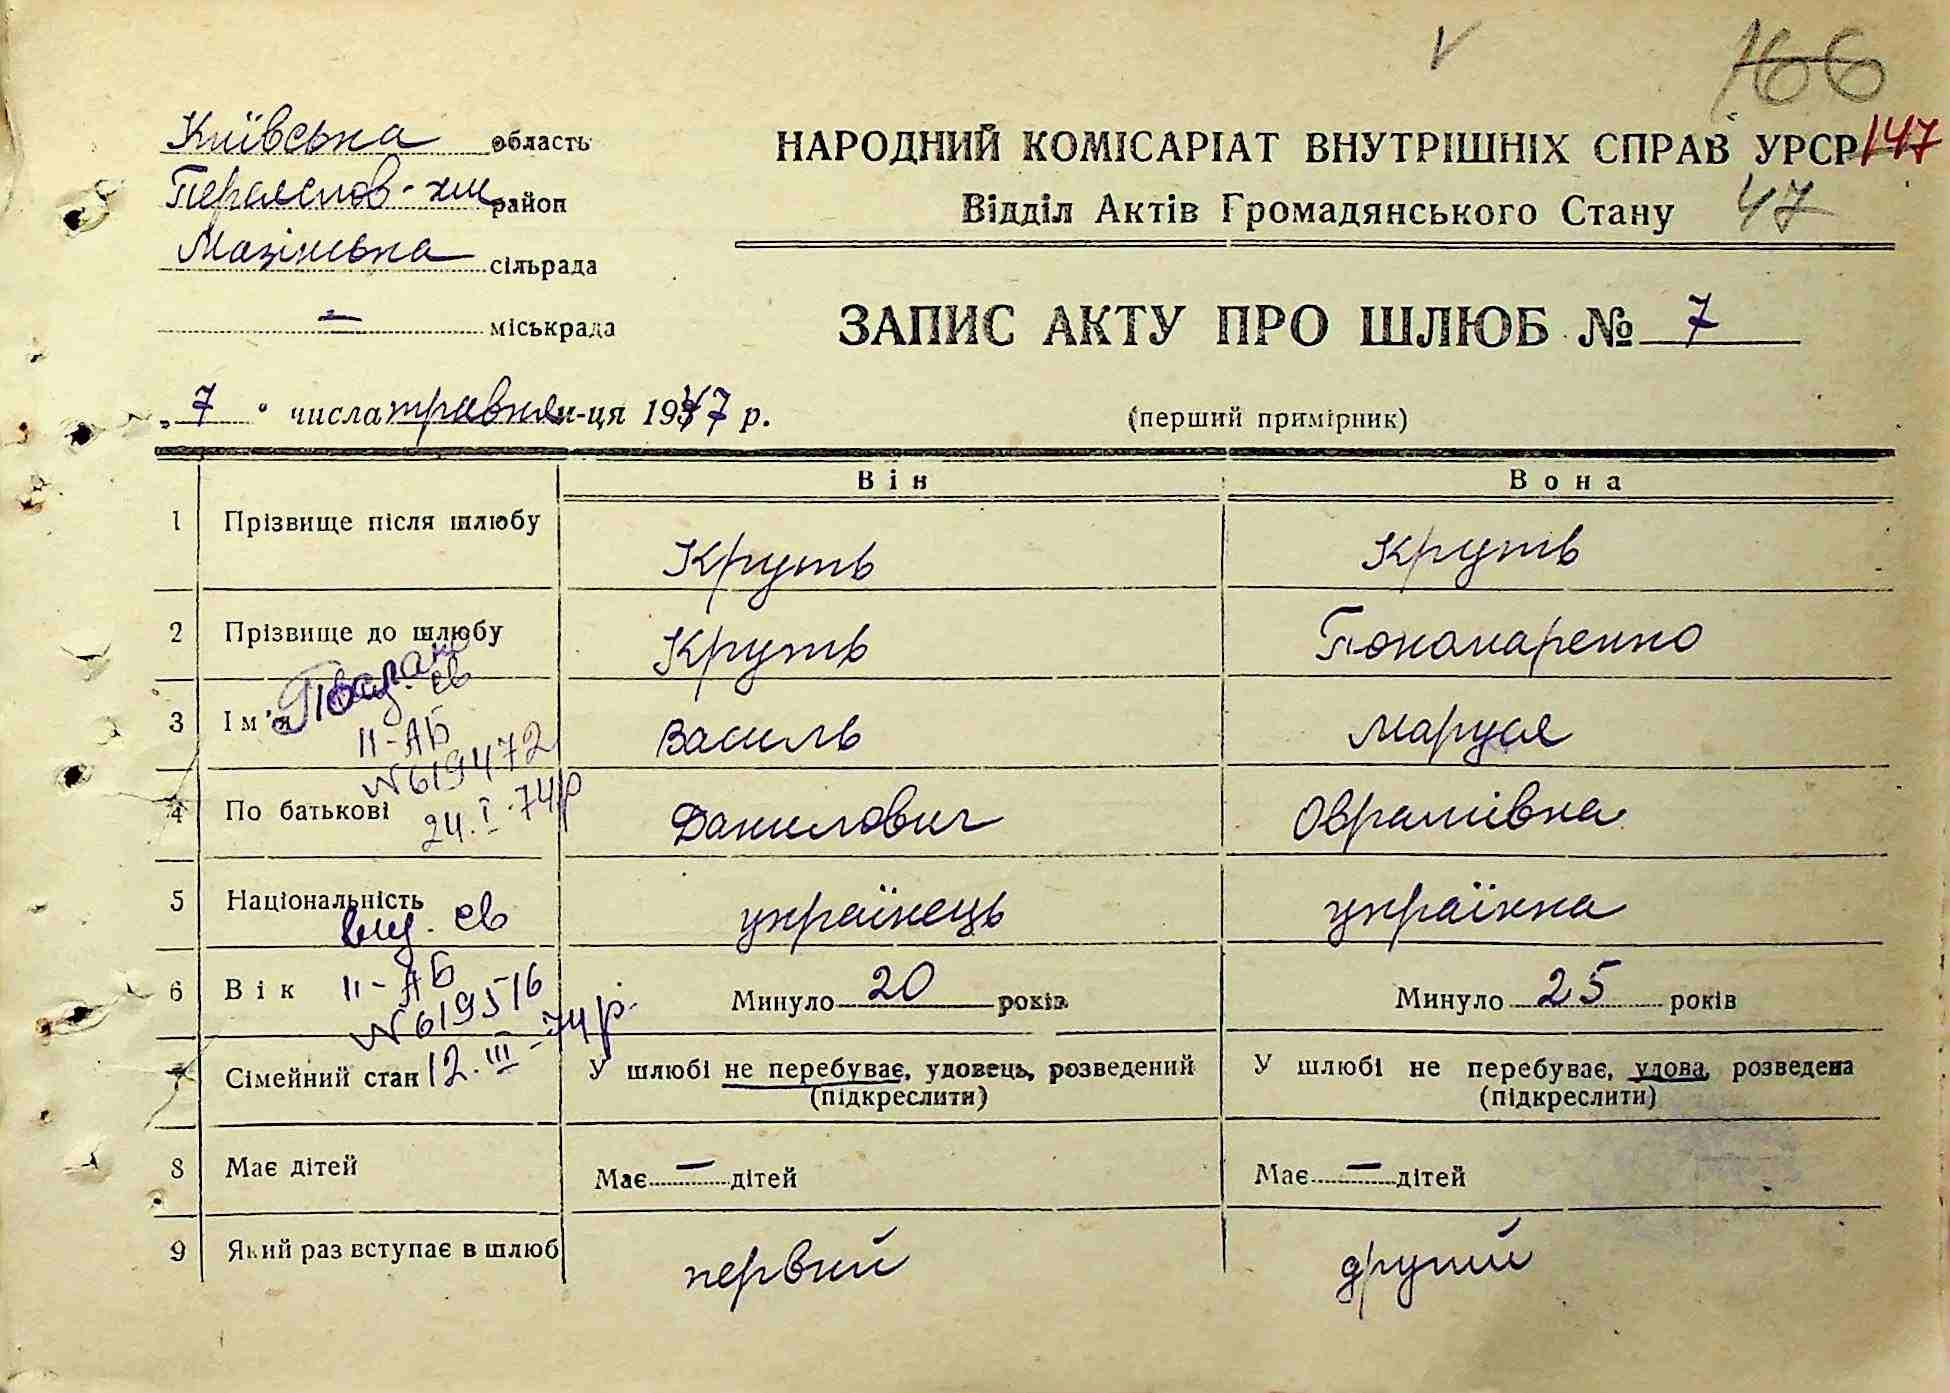 166
Київська область
НАРОДНИЙ КОМІСАРІАТ ВНУТРІШНІХ СПРАВ УРСР 147
Переяслов-хм район
Відділ Актів Громадянського Стану 47
Мазінська сільрада
— міськрада
ЗАПИС АКТУ ПРО ШЛЮБ № 7
„7" числа травня м-ця 1947 р.
(перший примірник)
Він Вона
1 Прізвище після шлюбу Круть Круть
2 Прізвище до шлюбу Круть Пономаренко
3 Ім'я Василь Маруся
ІІ-АБ
№619472
24.I-74р
4 По батькові Данилович Оврамівна
5 Національність українець українка
вид. св
ІІ-АБ
№619516
12.III-74р.
6 Вік Минуло 20 років Минуло 25 років
7 Сімейний стан У шлюбі не перебуває, удовець, розведений У шлюбі не перебуває, удова, розведена
(підкреслити) (підкреслити)
8 Має дітей Має — дітей Має — дітей
9 Який раз вступає в шлюб первий другий